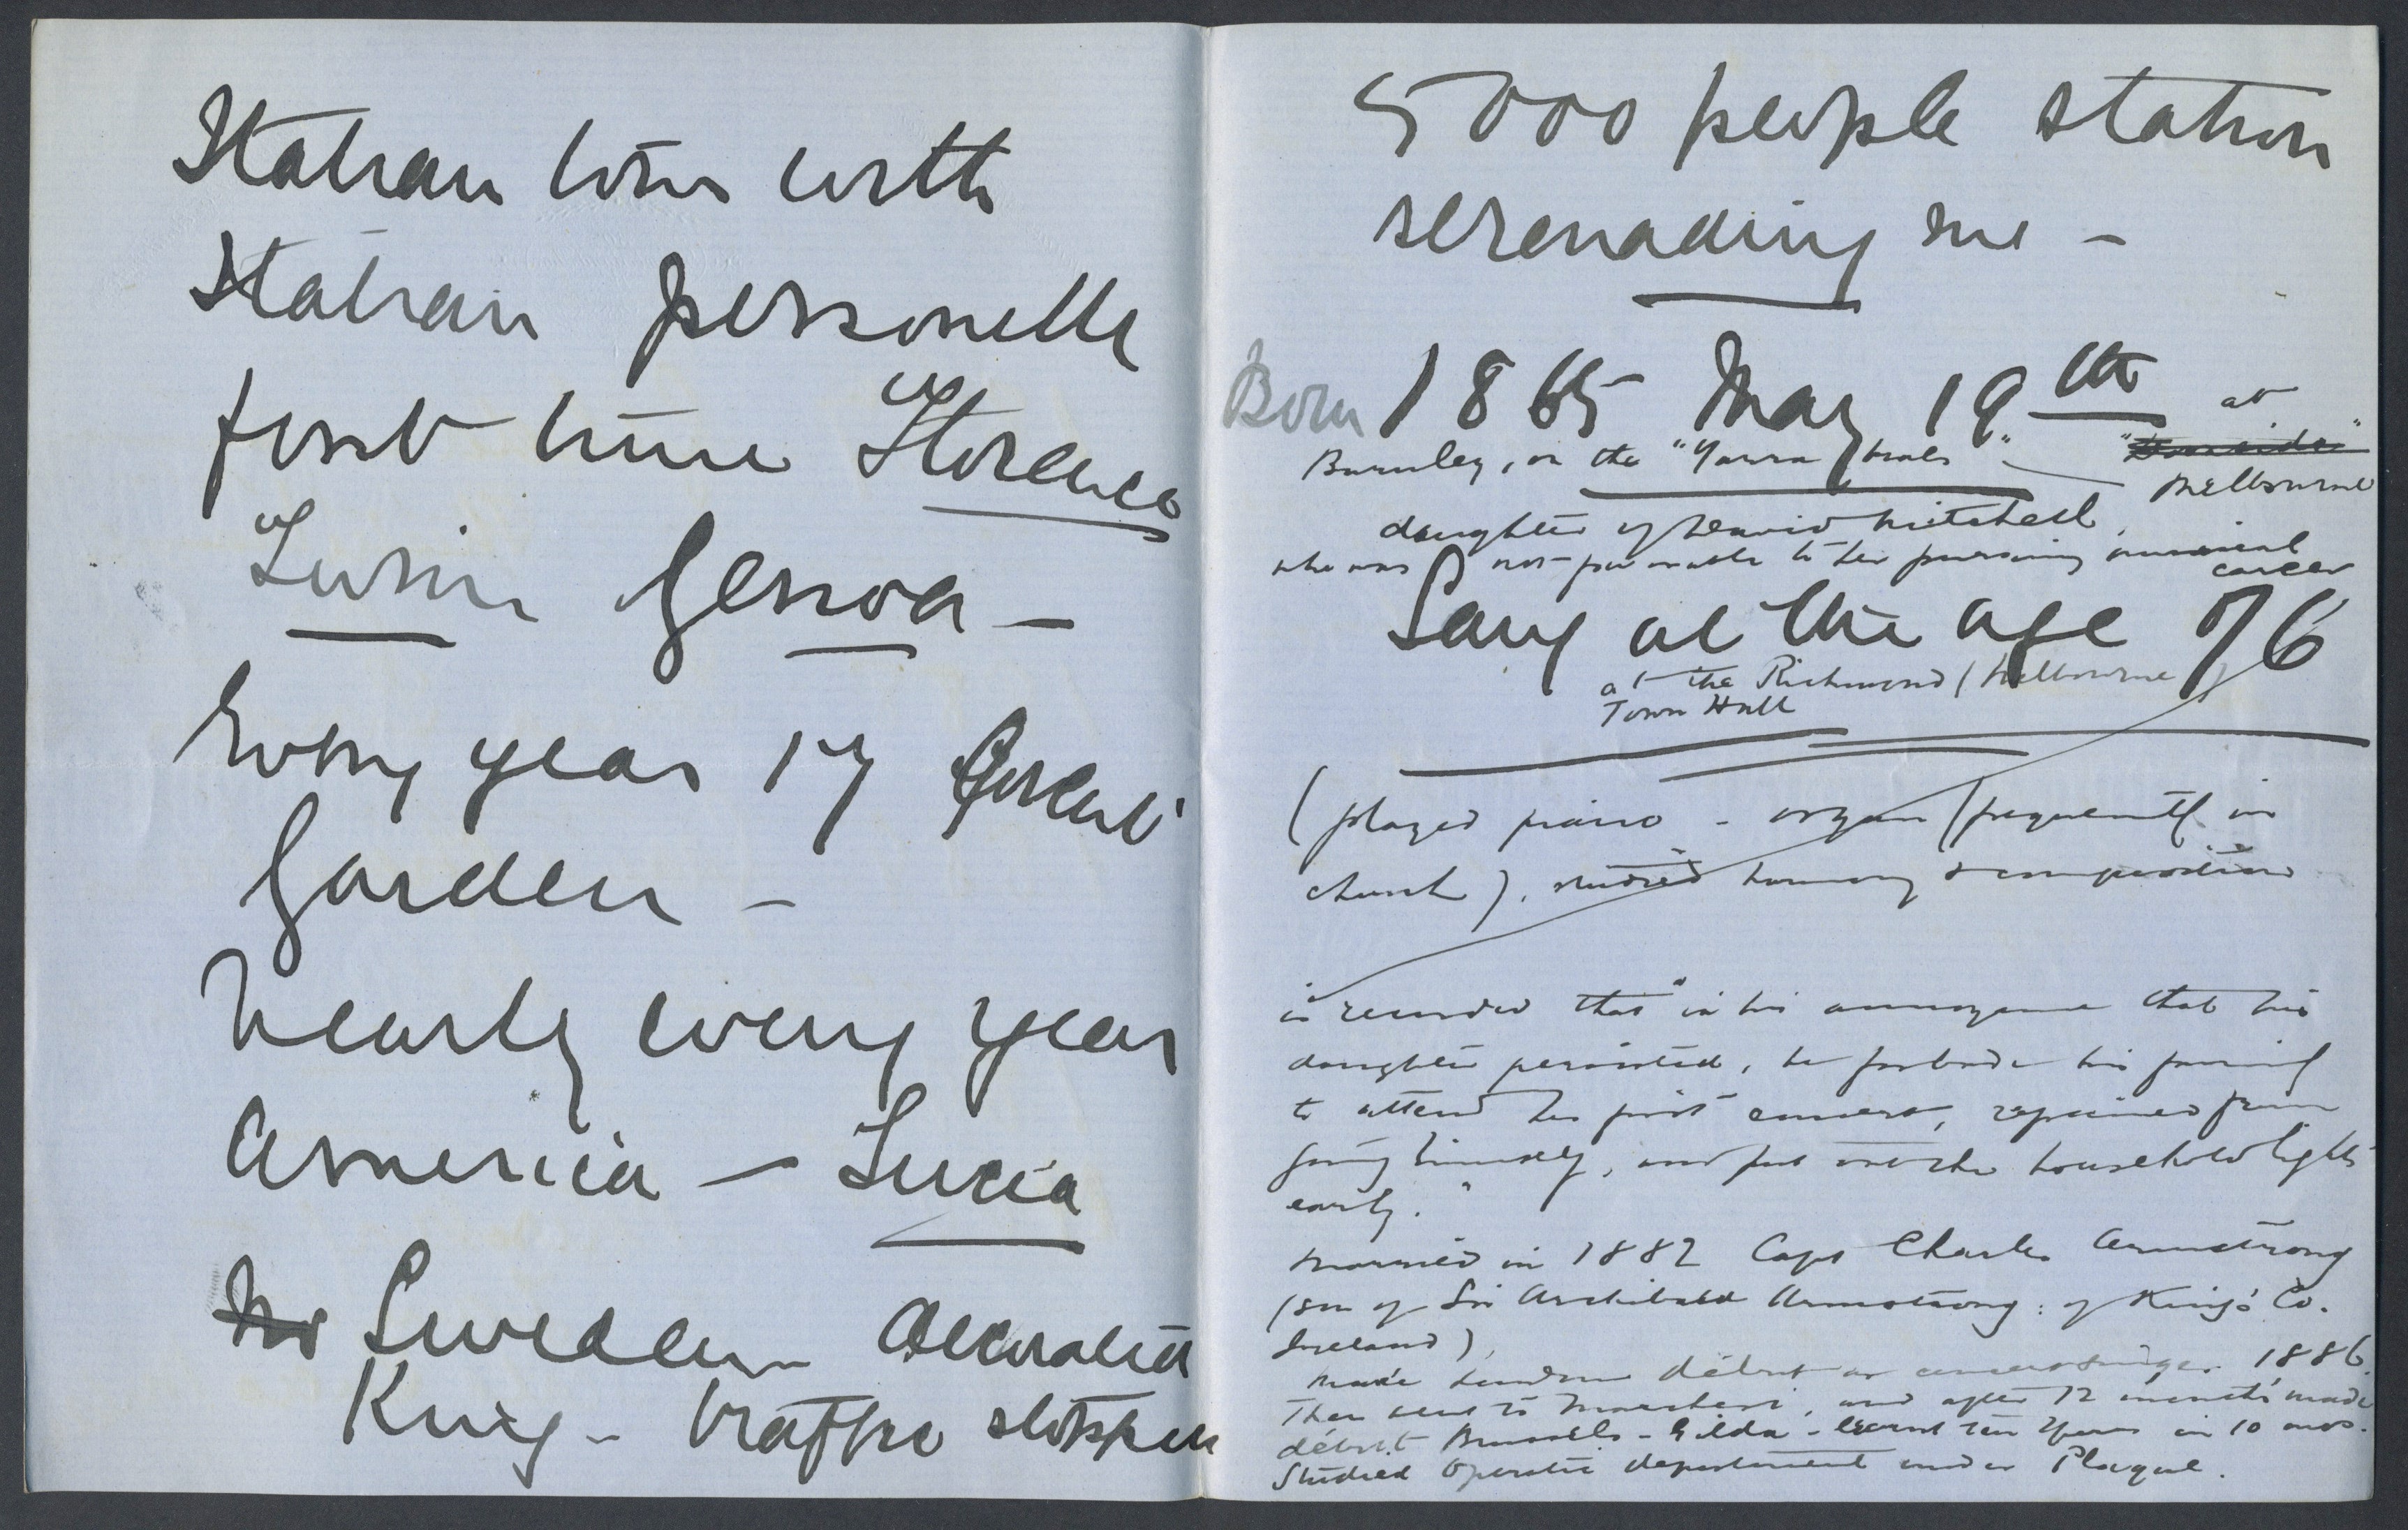 Italian tour with
Italian personelle
first time in Florence
in Turin Genoa –
Every year 17 Covent
Garden –
Nearly every year
America – Lucia
Sweden decorated
King – traffic stopped
5000 people station
serenading me –
Born 1865 May 19th at
Burnley, on the "Yarra
Melbourne
daughter of David Mitchell,
who was not favourable to her pursuing musical
career
Sang at the age of 6
at the Richmond (Melbourne)
Town Hall
(played piano – organ (frequently in
church), studied harmony & composition
is recorded that "in his annoyance that his
daughter persisted, he forbade his family
to attend her first concert, refrained from
going himself, and put out the household lights
early."
Married in 1882 Capt Charles Armstrong
(son of Sir Archibald Armstrong: of King's Co.
Ireland),
Made London début as concert singer 1886.
Then went to Marchesi, and after 12 months made
début Brussels – Gilda – learnt ten in 10 mos.
Studied operatic department under Plaque.